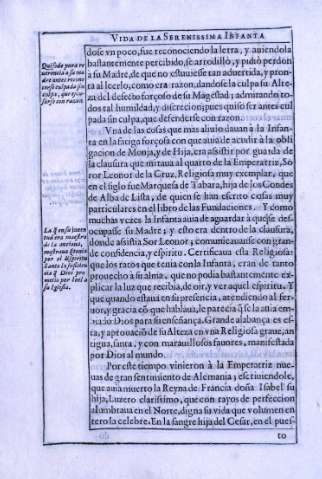 VIDA DE LA SERENISSIMA INFANTA
dose vn poco, fue reconociendo la letra, y auiendola
bastantemente percibido, se arrodilló, y pidió perdon
à su Madre, de que no estuuiesse tan aduertida, y pron-
ta al leerlo, como era razon, dandose la culpa su Alte-
za del defecto forçoso de su Magestad; admirando to-
dos tal humildad, y discrecion; pues quiso ser antes cul-
pada sin culpa, que defenderse con razon.
Vna de las cosas que mas aliuio dauan à la Infan-
ta en la fatiga forçosa con que auia de acudir à la obli-
gacion de Monja, y de Hija, era assistir por guarda de
la clausura que miraua al quarto de la Emperatriz, So
ror Leonor de la Cruz, Religiosa muy exemplar, que
en el siglo fue Marquesa de Tabara, hija de los Condes
de Alba de Lista, de quien se han escrito cosas muy
particulares en el libro de las Fundaciones. Y como
muchas vezes la Infanta auia de aguardar à que se des-
ocupasse su Madre; y esto era dentro de la clausura,
donde assistia Sor Leonor; comunicauase con gran-
de confidencia, y espiritu. Certificaua esta Religiosa
que los ratos que tenia con la Infanta, eran de tanto
prouecho à su alma, que no podia bastantemente ex-
plicar la luz que recibia, de oir, y ver aquel espiritu. Y
que quando estaua en su presencia, atendiendo al fer-
uor, y gracia con que hablaua, le parecia que se la em-
biaua Dios para su enseñança. Grande alabança es es-
ta, y aprouacion de su Alteza en vna Religiosa graue, an
tigua, santa, y con marauillosos fauores, manifestada
por Dios al mundo.
Por este tiempo vinieron à la Emperatriz nue-
uas de gran sentimiento de Alemania; escriuiendole,
que auia muerto la Reyna de Francia doña Isabel su
hija, Luzero clarissimo, que con rayos de perfeccion
alumbraua en el Norte, digna su vida que volumen en
tero la celebre. En la sangre hija del Cesar, en el pues-
to
Quiso de pura re
uerencia à su ma
dre antes recono
cerse culpada sin
culpa, que escu-
sarse con razon.